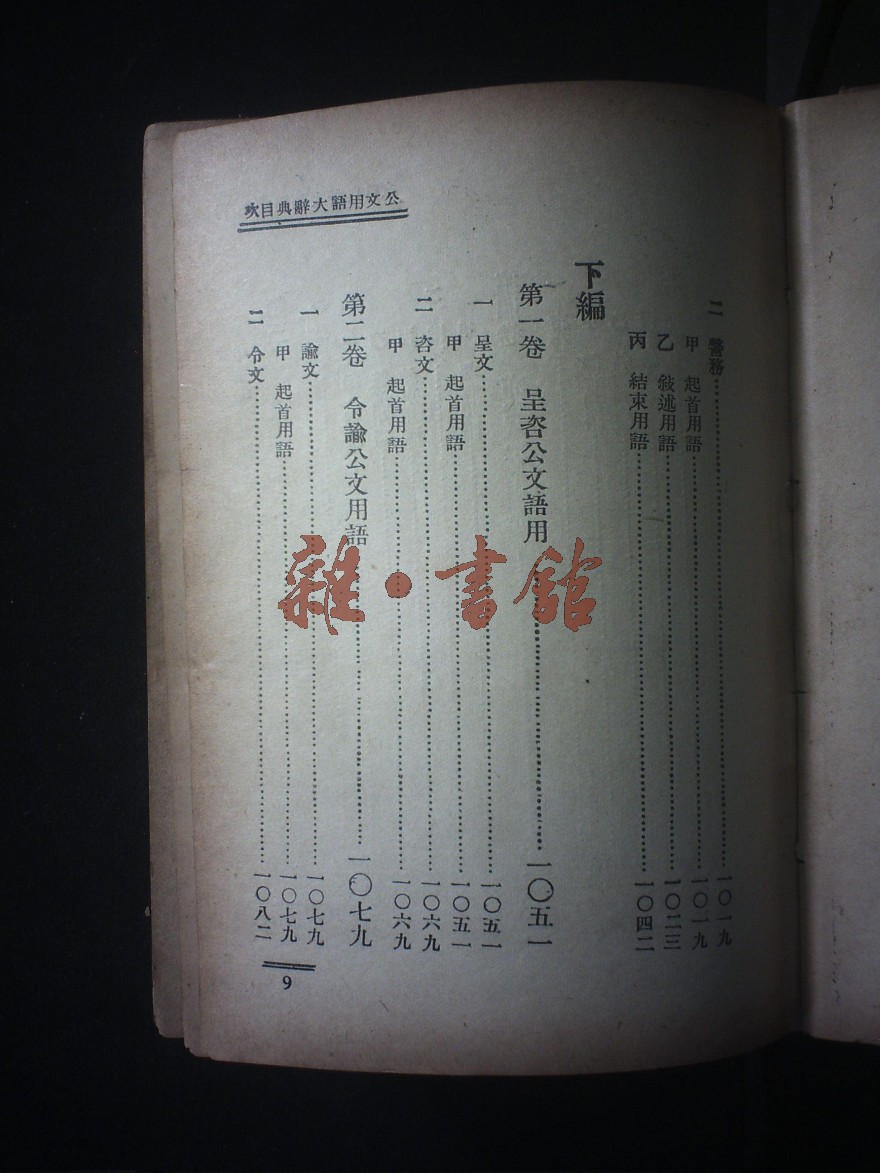 公文用語大辭典目次
二 警務……一〇一九
甲 起首用語……一〇一九
乙 敍述用語……一〇二三
丙 結束用語……一〇四二
下編
第一卷 呈咨公文語用……一〇五一
一 呈文……一〇五一
甲 起首用語……一〇五一
二 咨文……一〇六九
甲 起首用語……一〇六九
第二卷 令諭公文用語……一〇七九
一 諭文……一〇七九
甲 起首用語……一〇七九
二 令文……一〇八二
9
雜·書館